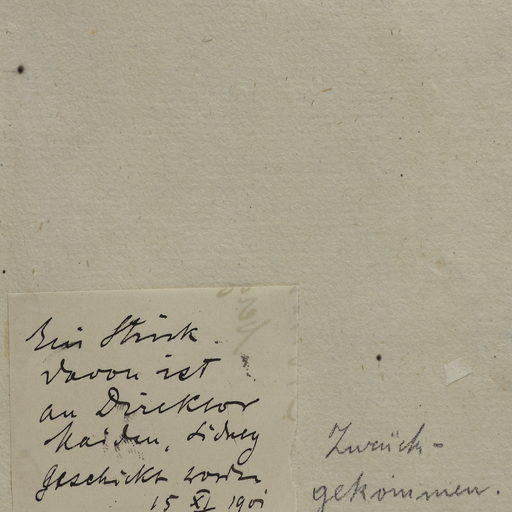 Ein Stück
davon ist
an Direktor
Maiden, Sidney
geschickt worden
15 XI 1901
Zurück-
gekommen.